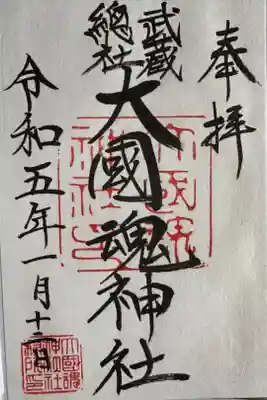 奉拝
武蔵
總社
大國魂神社
令和五年一月十二日